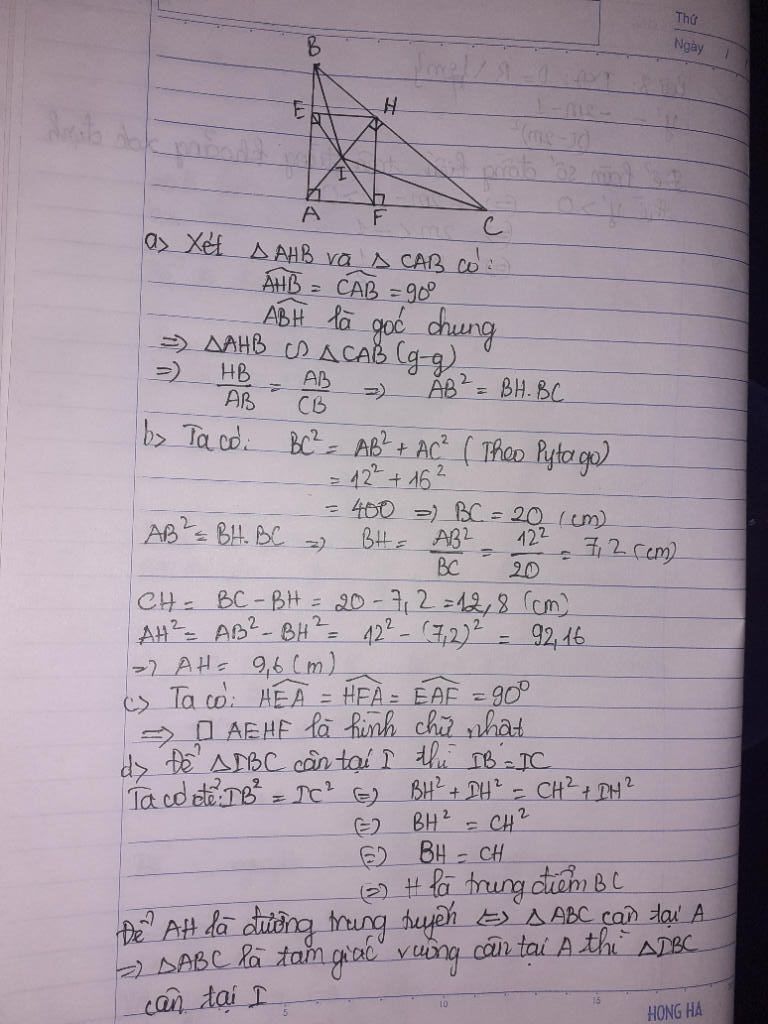 Thứ
Ngày
B
E
H
I
A
F
C
a> Xét △AHB và △CAB có:
\widehat{AHB} = \widehat{CAB} = 90°
\widehat{ABH} là góc chung
=> △AHB ∽ △CAB (g-g)
=> HB/AB = AB/CB => AB² = BH.BC
b> Ta có: BC² = AB² + AC² (Theo Pytago)
= 12² + 16²
= 400 => BC = 20 (cm)
AB² = BH.BC => BH = AB²/BC = 12²/20 = 7,2 (cm)
CH = BC - BH = 20 - 7,2 = 12,8 (cm)
AH² = AB² - BH² = 12² - (7,2)² = 92,16
=> AH = 9,6 (m)
c> Ta có: \widehat{HEA} = \widehat{HFA} = \widehat{EAF} = 90°
=> □ AEHF là hình chữ nhật
d> Để △IBC cân tại I thì IB = IC
Ta có để: IB² = IC² <=> BH² + IH² = CH² + IH²
<=> BH² = CH²
<=> BH = CH
<=> H là trung điểm BC
Để AH là đường trung tuyến <=> △ABC cân tại A
=> △ABC là tam giác vuông cân tại A thì △IBC
cân tại I
5 10 15
HONG HA